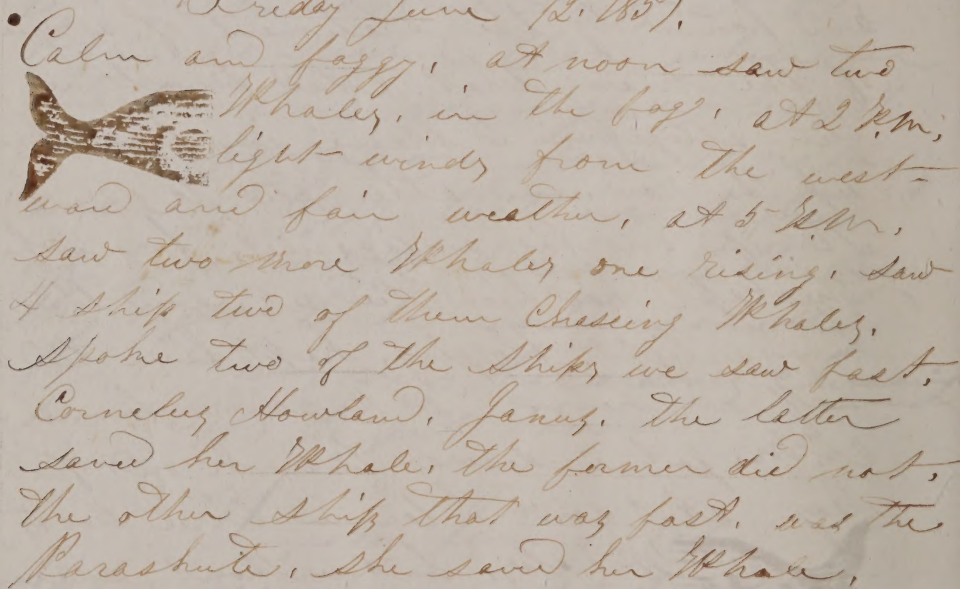 Friday June 12. 1857.
Calm and foggy, at noon saw two
Whales, in the fog, at 2 P.M,
light winds from the west-
ward and fair weather, at 5 P.M,
saw two more Whales one rising, saw
4 ship two of them Chaseing Whales,
Spoke two of the Ships we saw fast,
Cornelus Howland, Janus, the latter
saved her Whale, the former did not,
the other ship that was fast, was the
Parashute, she saved her Whale,